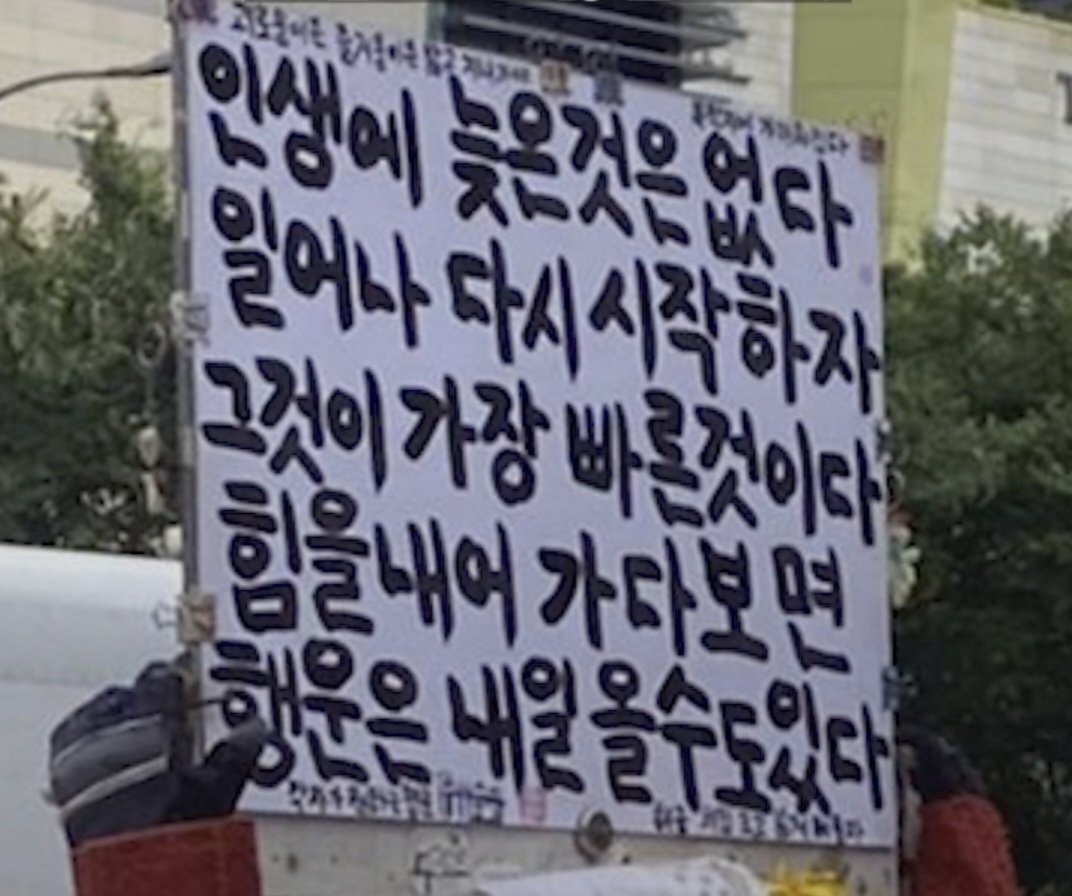 괴로움이든 즐거움이든
인생에 늦은것은 없다
일어나 다시 시작하자
그것이 가장 빠른것이다
힘을내어 가다보면
행운은 내일 올수도있다